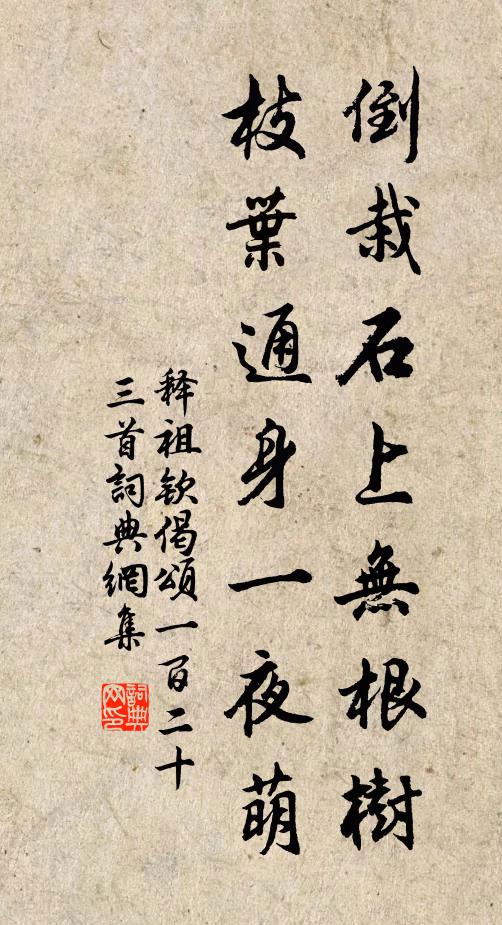 倒栽石上無根樹
枝葉通身一夜萌
释祖欽偈頌一百二十
三首詞典網集
詞典网印